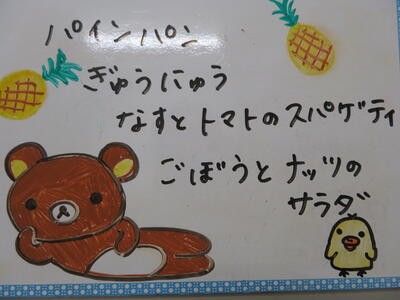 パインパン
ぎゅうにゅう
なすとトマトのスパゲティ
ごぼうとナッツの
サラダ